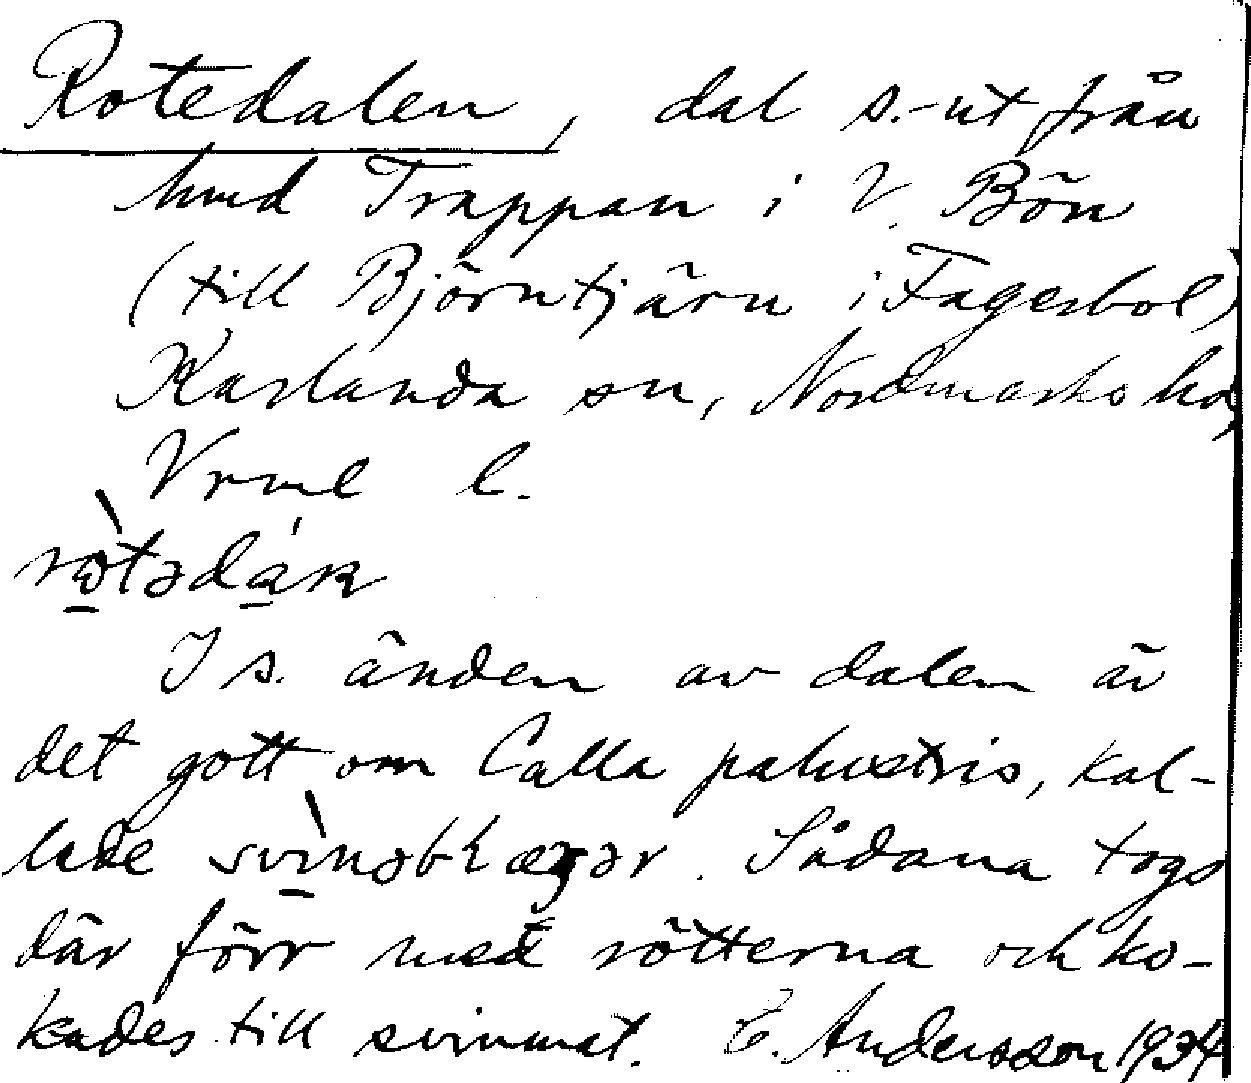 Rotedalen, dal s.-ut från
hmd Trappan i V. Bön
(till Björntjärn i Fagerbol)
Karlanda sn, Nordmarks hd,
Vrml l.
I s. änden av dalen är
det gott om Calla palustris, kal-
lade . Sådana togs
där förr med rötterna och ko-
kades till svinmat. E. Andersson 1934